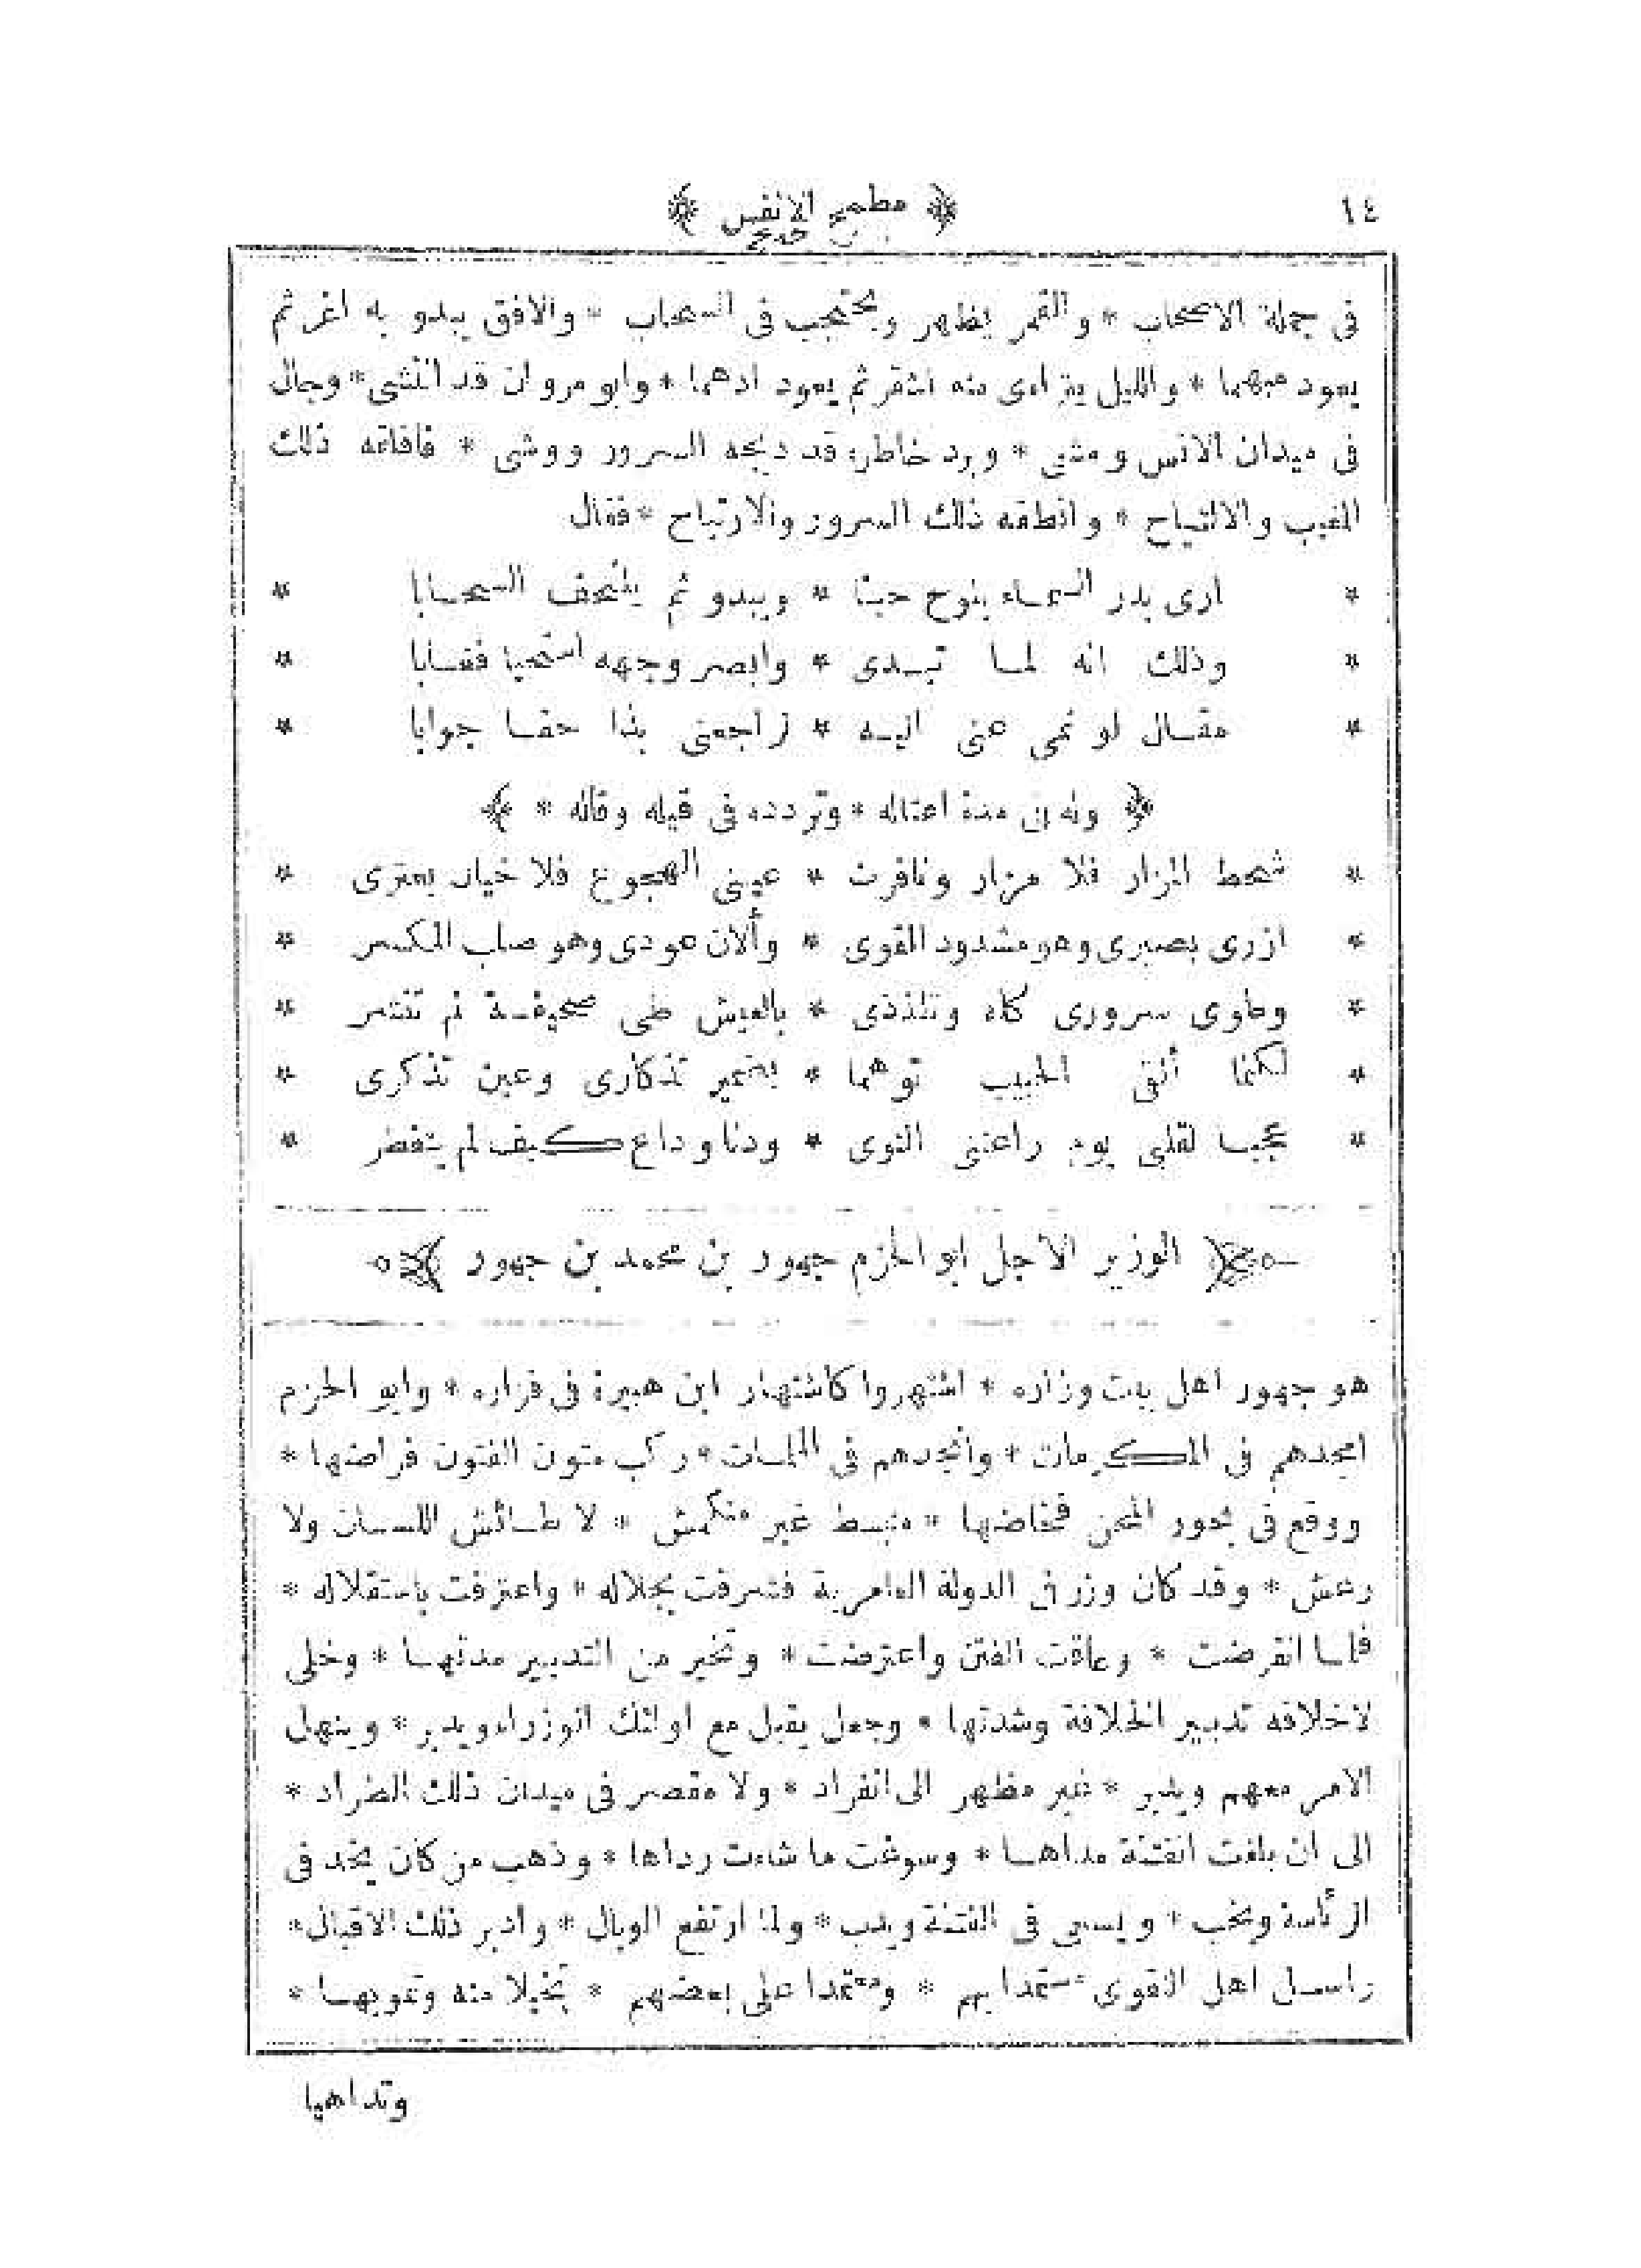 ١٤
﴿ مطمح الانفس ﴾
فى جملة الاصحاب * والقمر يظهر ويحتجب فى السحاب * والافق يبدو به اغر ثم
يعود مبهما * والليل يتراءى منه اشقر ثم يعود ادهما * وابو مروان قد انتشى * وجال
فى ميدان الانس ومشى * وبرد خاطره قد دبجه السرور ووشى * فاقلقه ذلك
المغيب والالتياح * وانطقه ذلك السرور والارتياح * فقال
* ارى بدر السماء يلوح حينا * ويبدو ثم يلتحف السحابا *
* وذلك انه لما تبدى * وابصر وجهه استحيا فغابا *
* مقال لو نمى عنى اليه * لراجعنى بذا حقا جوابا *
﴿ وله فى مدة اعتقاله * وتردده فى قيله وقاله * ﴾
* شحط المزار فلا مزار ونافرت * عينى الهجوع فلا خيال يعترى *
* ازرى بصبرى وهو مشدود القوى * وألان عودى وهو صلب المكسر *
* وطوى سرورى كله وتلذذى * بالعيش طى صحيفة لم تنشر *
* لكنما ألقى الحبيب توهما * بضمير تذكارى وعين تذكرى *
* عجبا لقلبى يوم راعتنى النوى * ودنا وداع كيف لم يتفطر *
﴿ الوزير الاجل ابو الحزم جهور بن محمد بن جهور ﴾
هو جهور اهل بيت وزاره * اشتهروا كاشتهار ابن هبيرة فى فزاره * وابو الحزم
امجدهم فى المكرمات * وانجدهم فى الملمات * ركب متون الفتون فراضها *
ووقع فى بحور المحن فخاضها * منبسط غير منكمش * لا طائش اللسان ولا
رعش * وقد كان وزر فى الدولة العامرية فشرفت بجلاله * واعترفت باستقلاله *
فلما انقرضت * وعاقت الفتن واعترضت * وتحيز من التدبير مدتها * وخلى
لاخلافه تدبير الخلافة وشدتها * وجعل يقبل مع اولئك الوزراء ويدبر * وينهل
الامر معهم ويدبر * غير مظهر الى انفراد * ولا مقصر فى ميدان ذلك الطراد *
الى ان بلغت الفتنة مداها * وسوغت ما شاءت رداها * وذهب من كان يخد فى
الرئاسة ويخب * ويسعى فى الفتنة ويدب * ولما ارتفع الوبال * وادبر ذلك الاقبال *
راسل اهل التقوى مستمدا بهم * ومعتمدا على بعضهم * تخيلا منه وتمويها *
وتداهيا